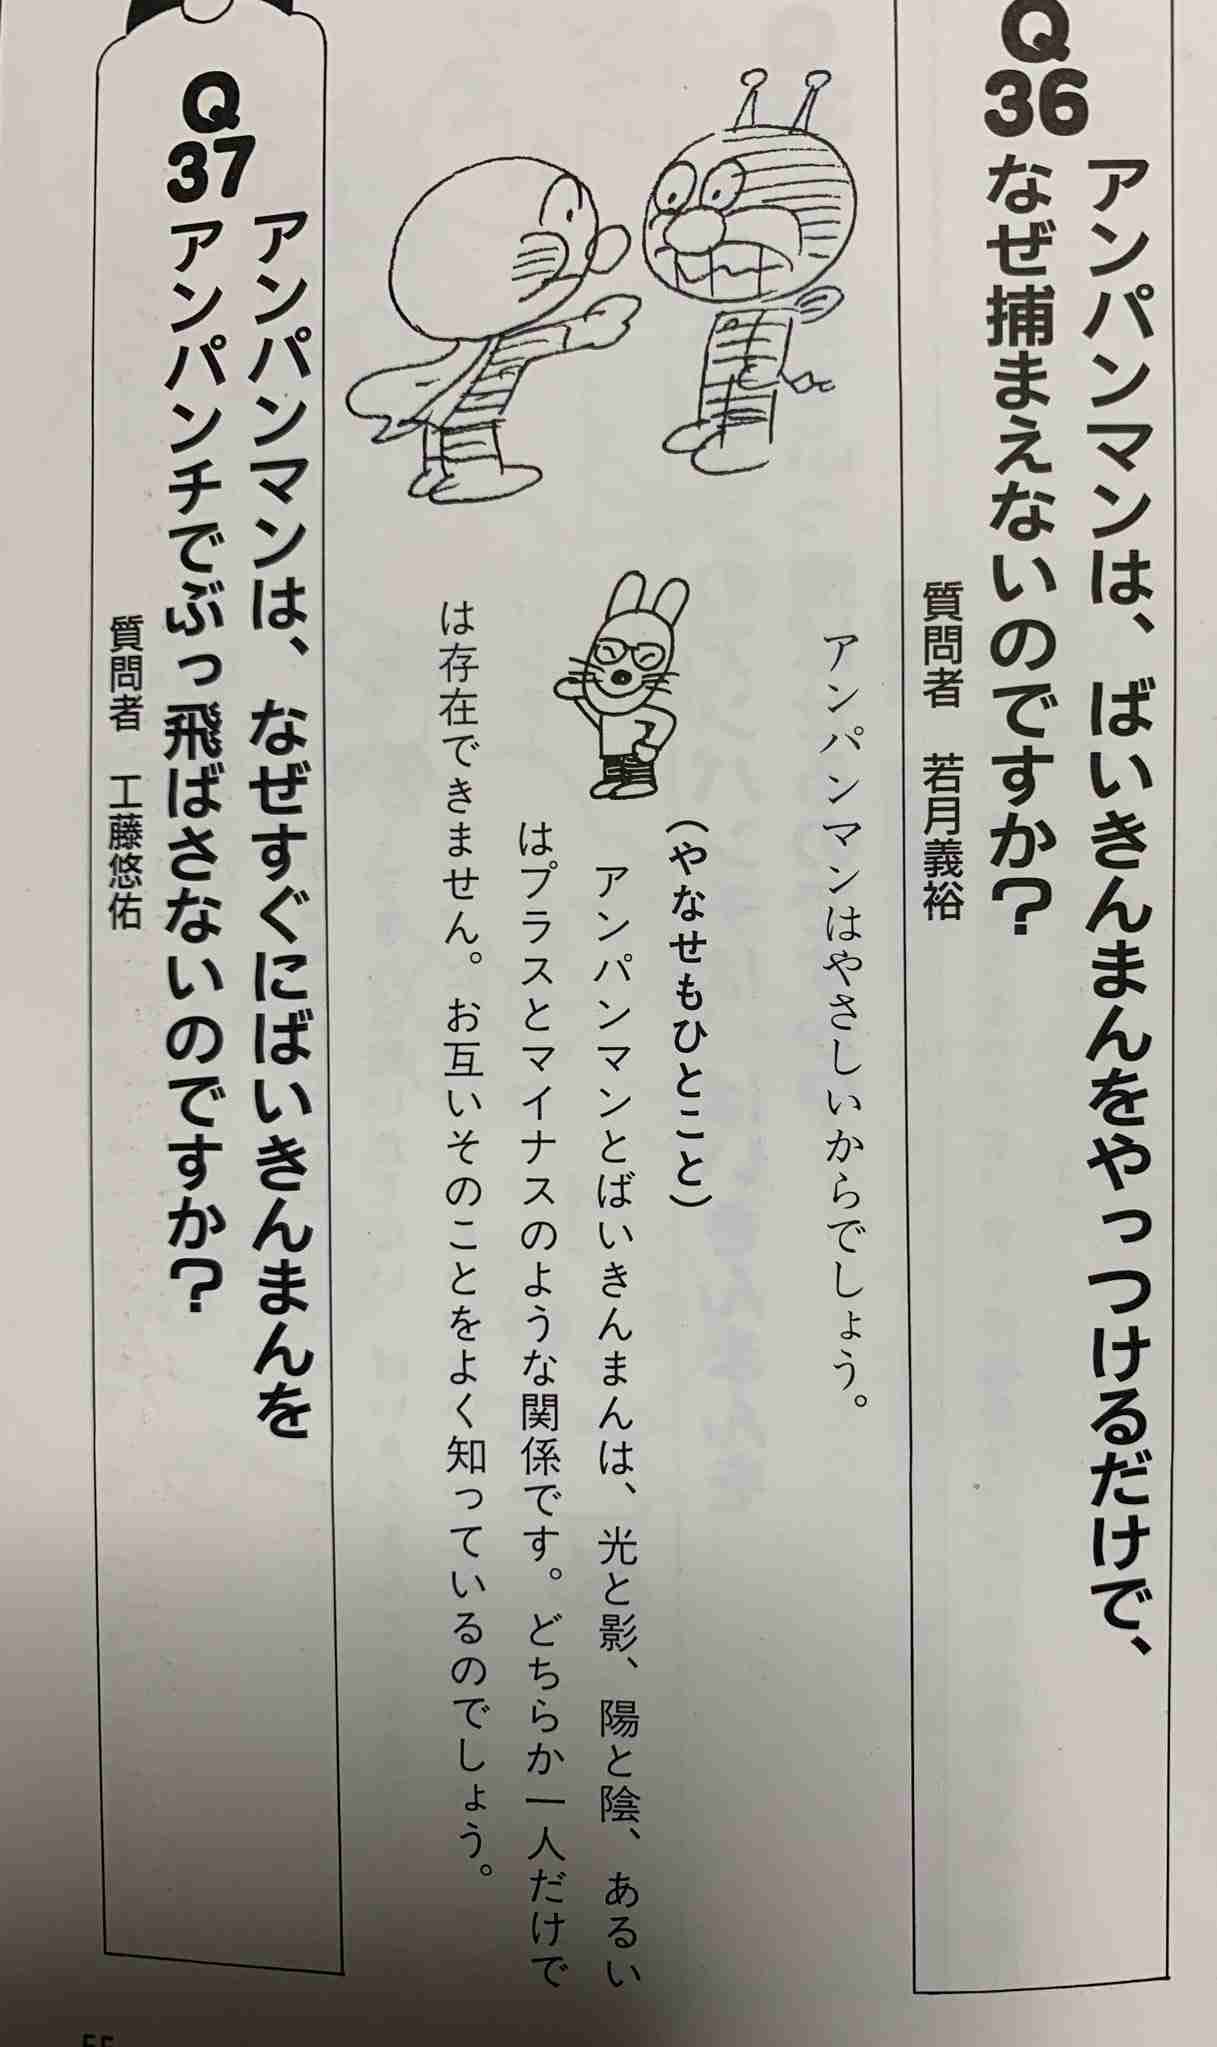 Q36
アンパンマンは、ばいきんまんをやっつけるだけで、
なぜ捕まえないのですか?
質問者 若月義裕
アンパンマンはやさしいからでしょう。
(やなせもひとこと)
アンパンマンとばいきんまんは、光と影、陽と陰、あるい
はプラスとマイナスのような関係です。どちらか一人だけで
は存在できません。お互いそのことをよく知っているのでしょう。
Q37
アンパンマンは、なぜすぐにばいきんまんを
アンパンチでぶっ飛ばさないのですか?
質問者 工藤悠佑